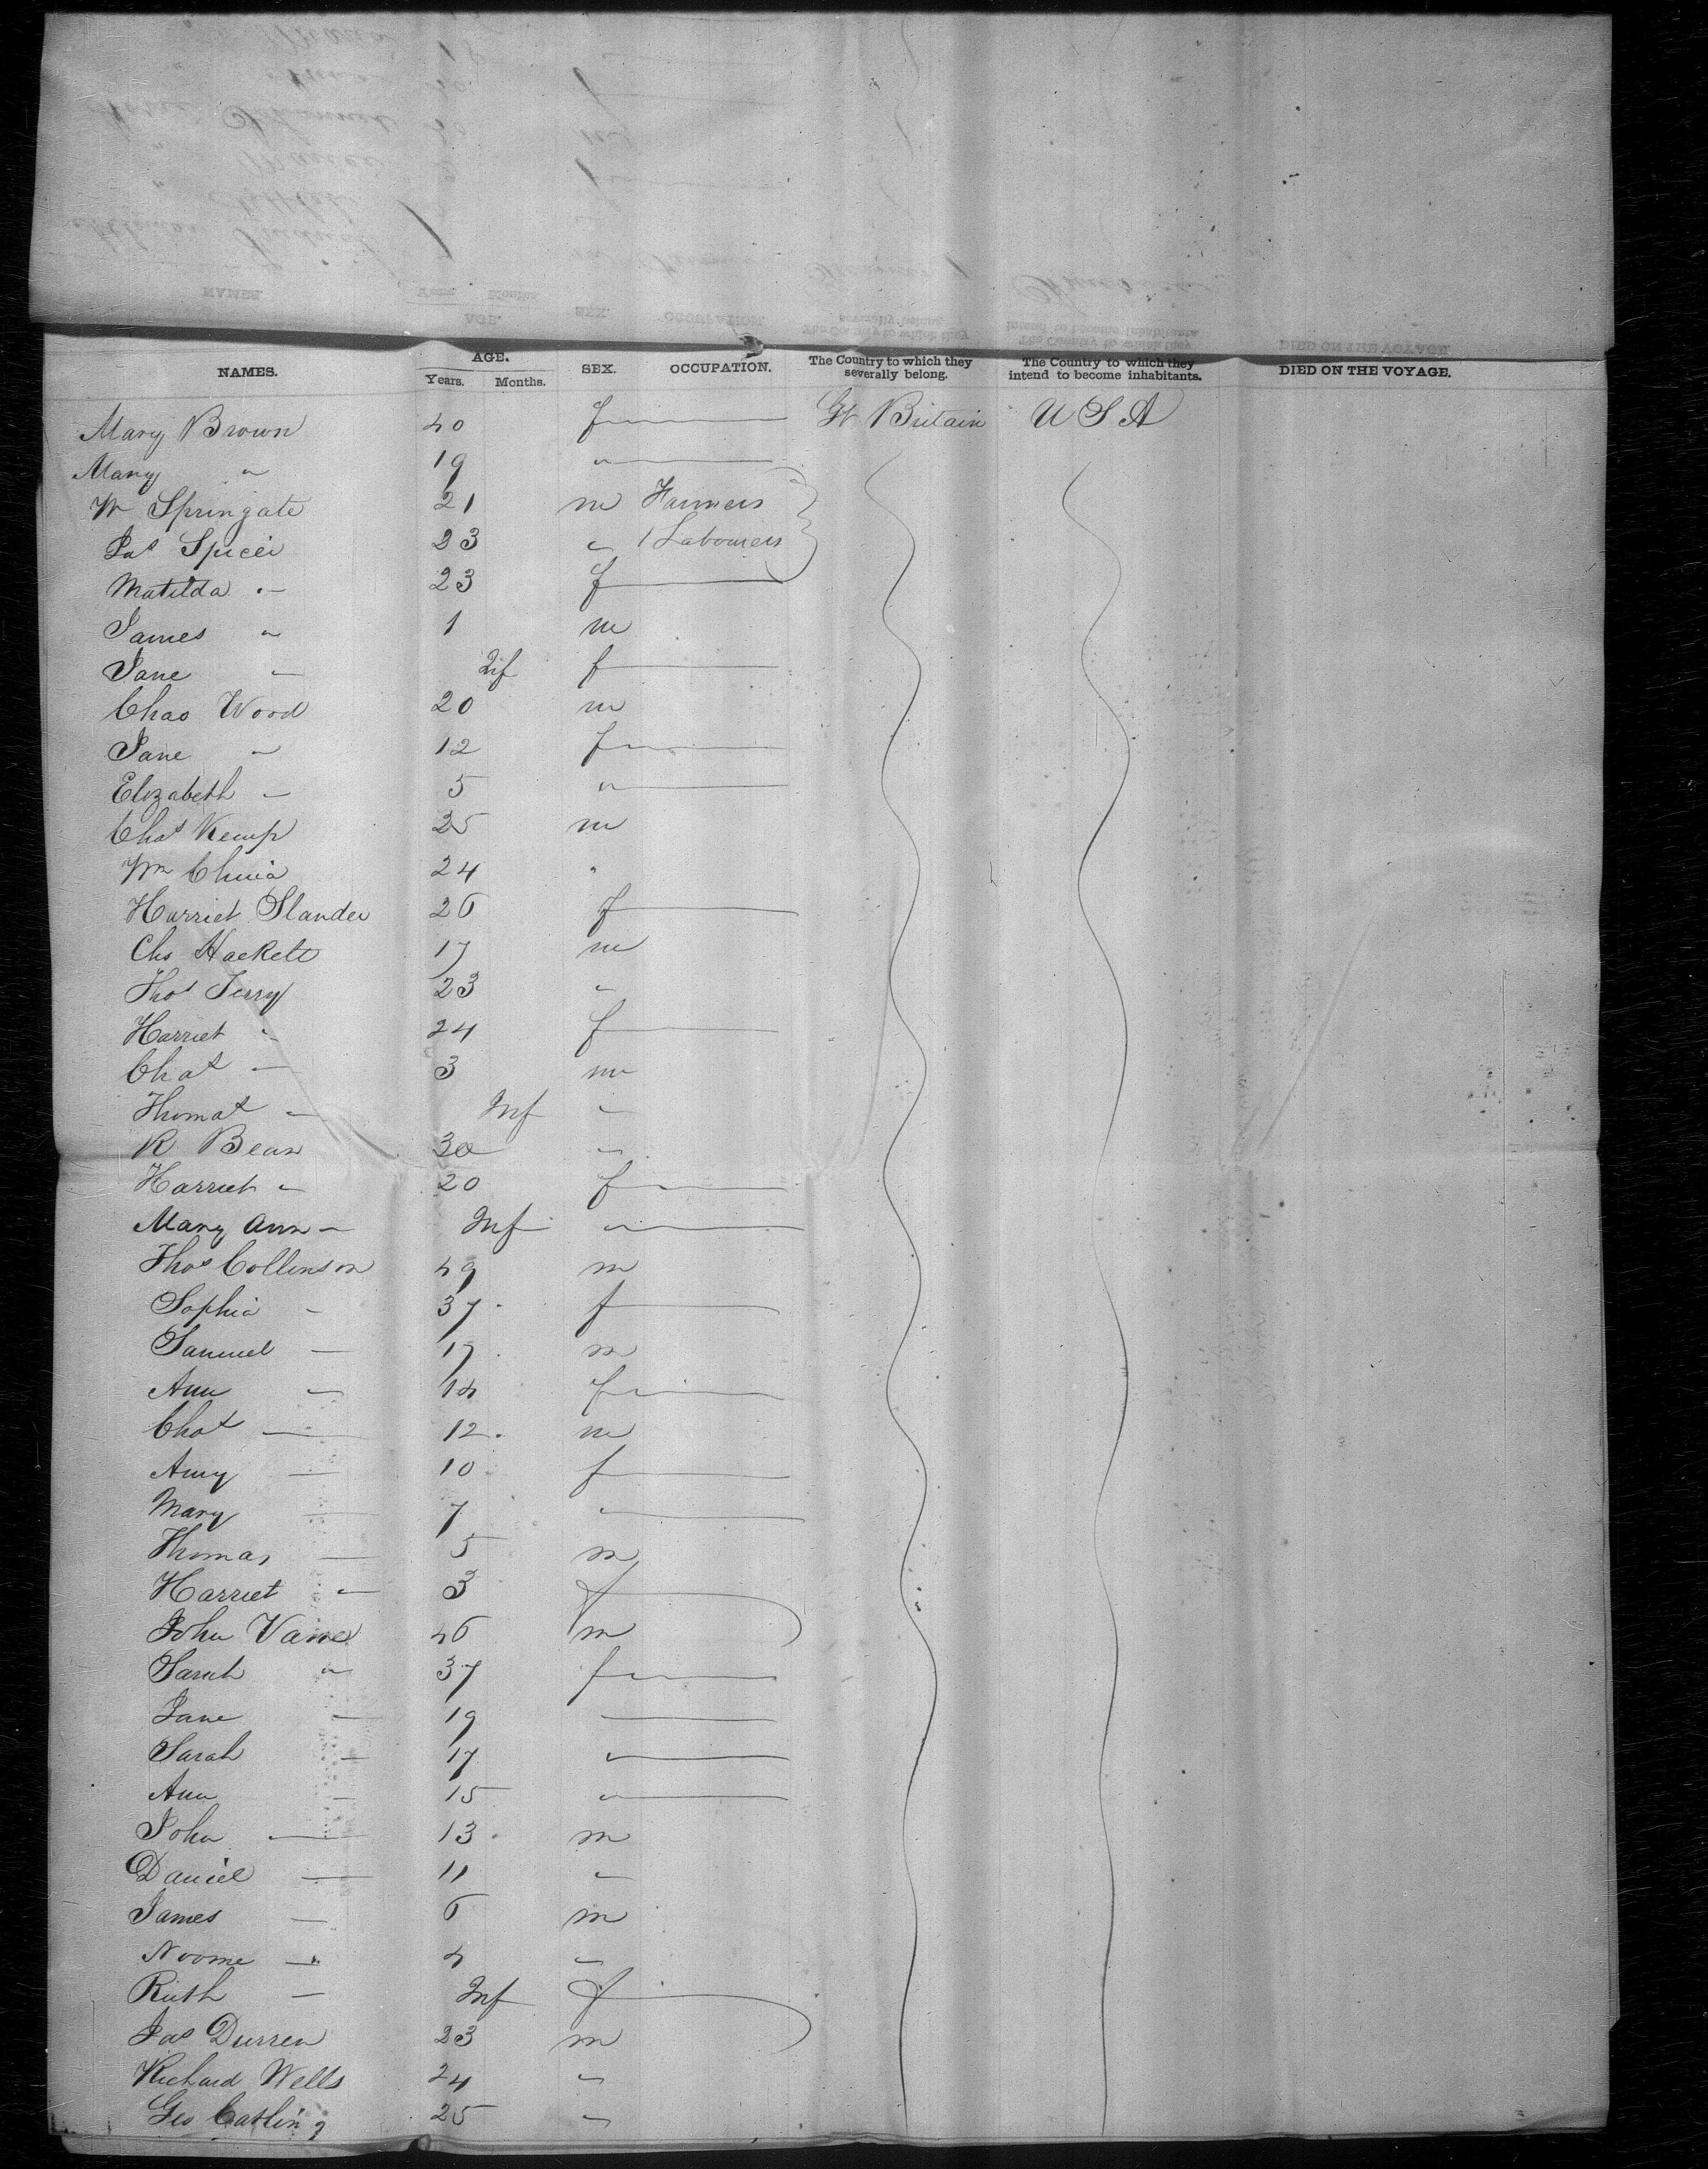 NAMES. AGE. Years. Months. SEX. OCCUPATION. The Country to which they severally belong. The Country to which they intend to become inhabitants. DIED ON THE VOYAGE.
Mary Brown 40 f Gt Britain U S A
Mary " 19 "
Wm Springate 21 m Farmers
Jas Spicer 23 " Labourers
Matilda " 23 f
James " 1 m
Jane " Inf f
Chas Wood 20 m
Jane " 12 f
Elizabeth " 5 "
Chas Kemp 25 m
Wm 24 "
Harriet Slander 26 f
Chs Hackett 17 m
Thos Terry 23 "
Harriet " 24 f
Chas " 3 m
Thomas " Inf "
R Bean 30 "
Harriet " 20 f
Mary Ann " Inf "
Thos Collinson 49 m
Sophia " 37 f
Samuel " 17 m
Ann " 14 f
Chas " 12 m
Amy " 10 f
Mary " 7 "
Thomas " 5 m
Harriet " 3 f
John Vane 46 m
Sarah " 37 f
Jane " 19 "
Sarah " 17 "
Ann " 15 "
John " 13 m
Daniel " 11 "
James " 6 m
Noome " 4 "
Ruth " Inf f
Jas Durren 23 m
Richard Wells 24 "
Geo Catling 25 "